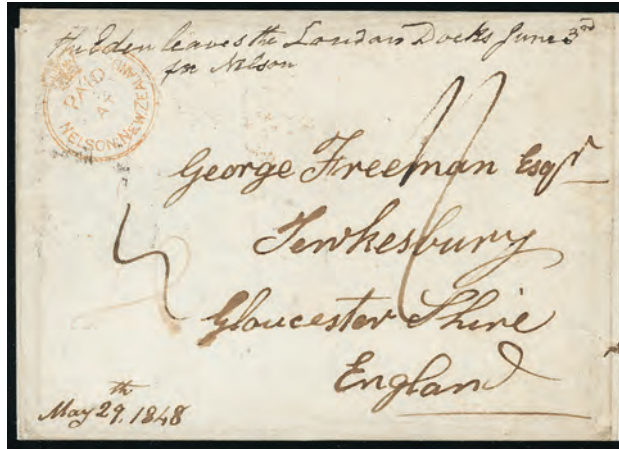 The Eden leaves the London Docks June 3rd
for Nelson
PAID
NELSON. NEW ZEALAND
George Freeman Esqr
Tewkesbury
Gloucester Shire
England
May 29th. 1848